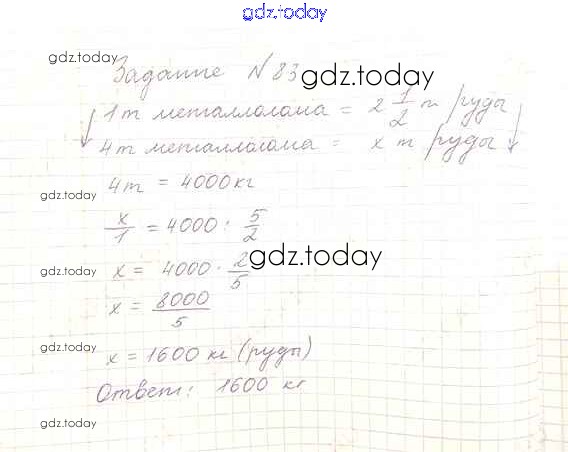 gdz.today
gdz.today
Задание №83 gdz.today
1т металлолома = 2 1/2 т руды
4т металлолома = x т руды
gdz.today
4т = 4000кг
gdz.today
x/1 = 4000 : 5/2
gdz.today
x = 4000 · 2/5 gdz.today
x = 8000/5
gdz.today
x = 1600 кг (руды)
Ответ: 1600 кг
gdz.today